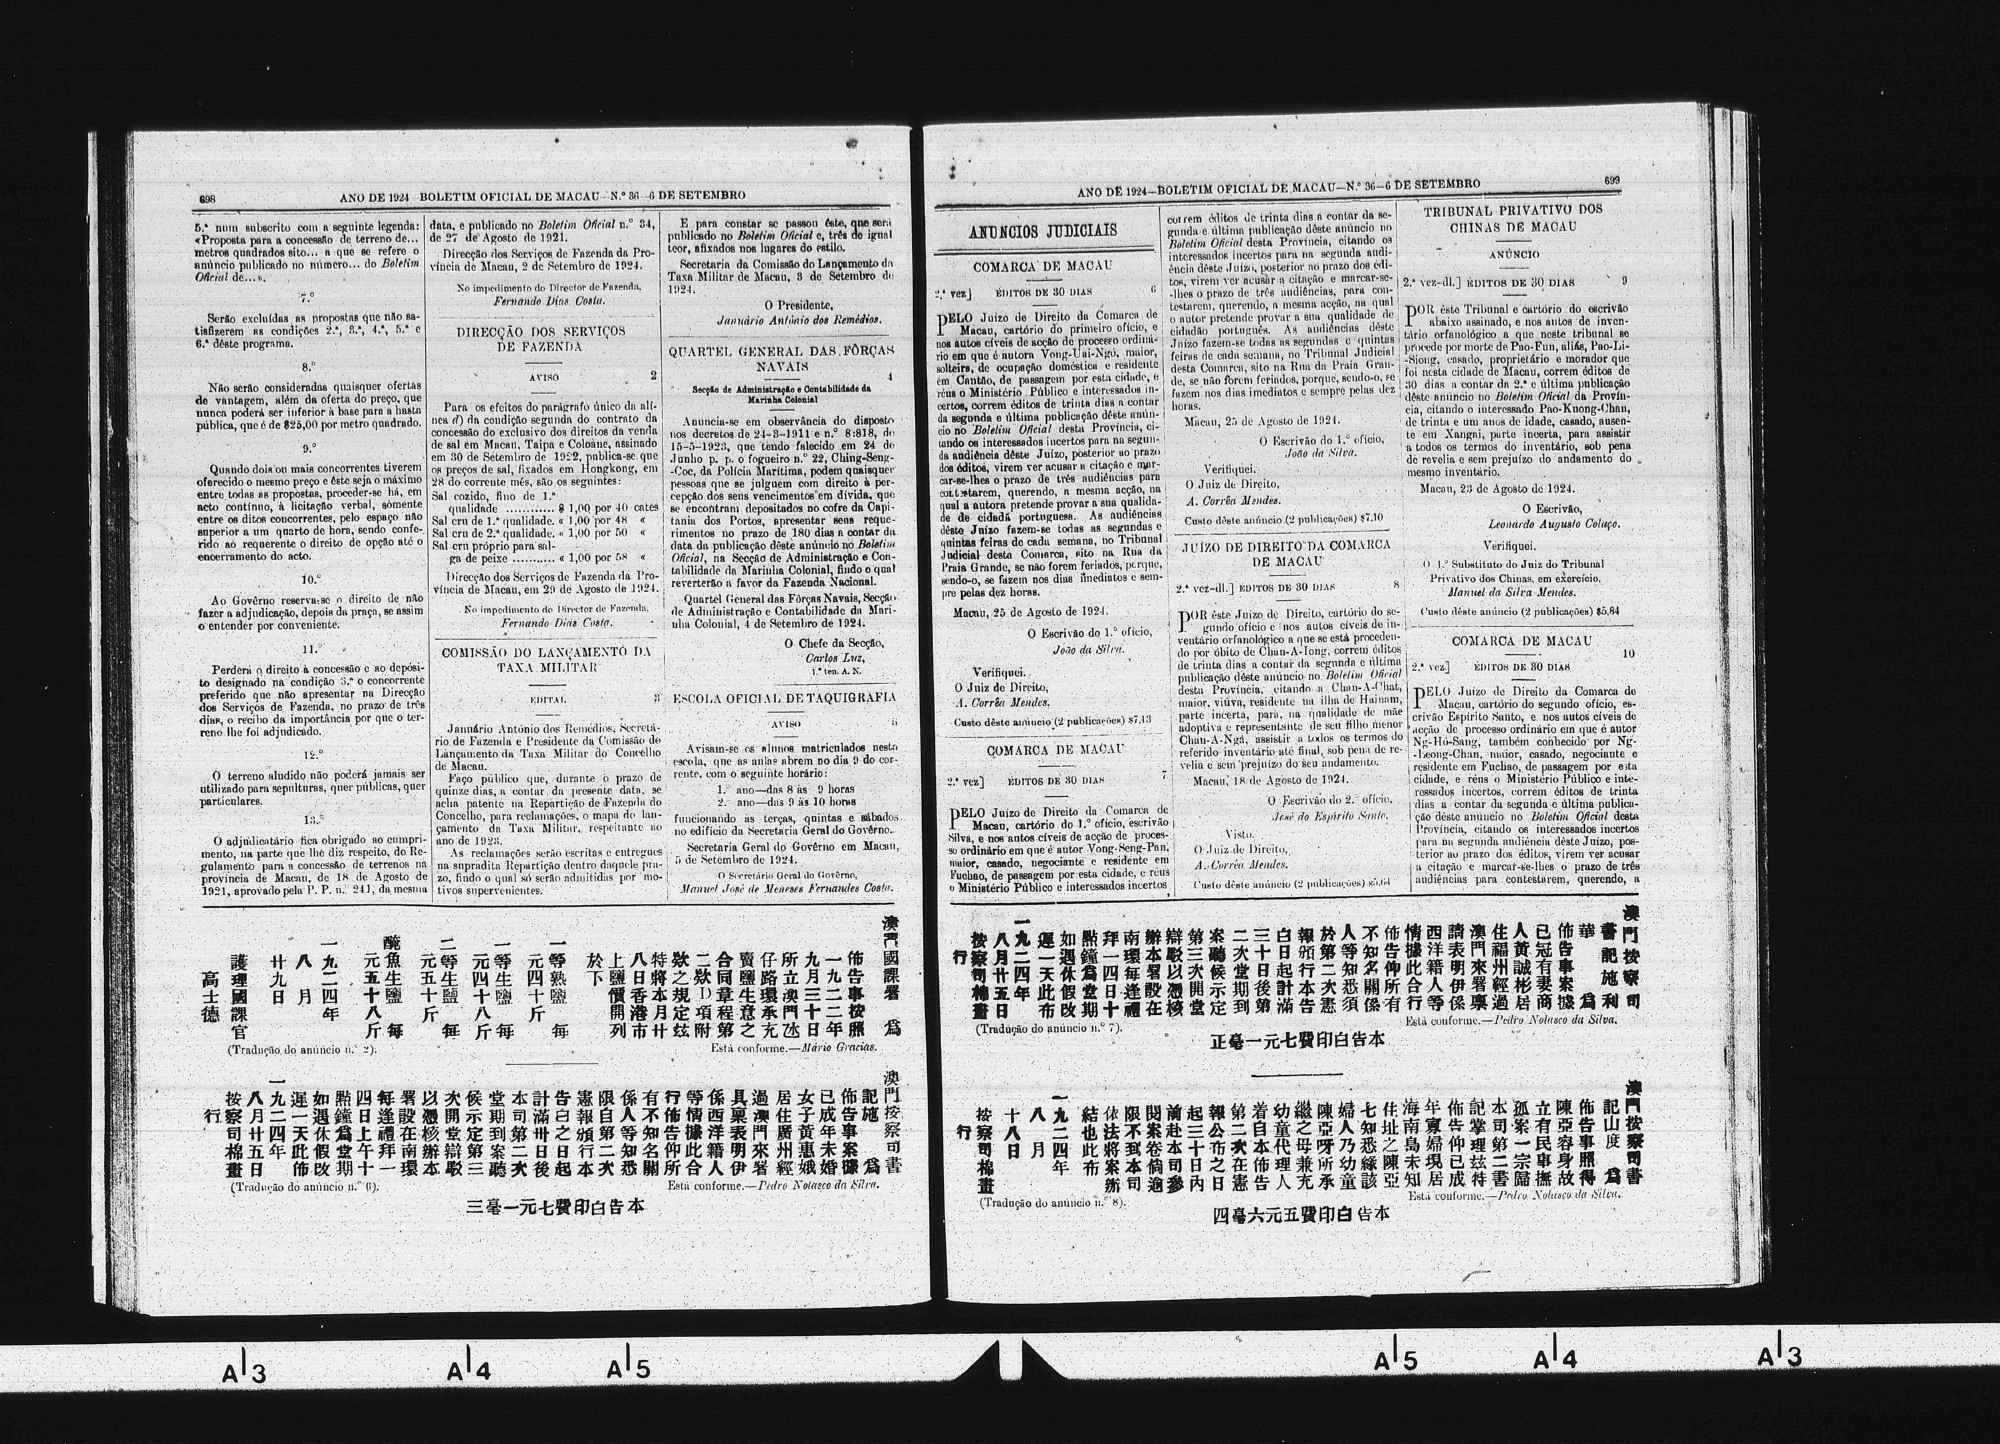 698 ANO DE 1924—BOLETIM OFICIAL DE MACAU—N.º 36—6 DE SETEMBRO
5.ª num subscrito com a seguinte legenda:
«Proposta para a concessão de terreno de...
metros quadrados sito... a que se refere o
anúncio publicado no número... do Boletim
Oficial de...».
7.º
Serão excluídas as propostas que não sa-
tisfizerem as condições 2.ª, 3.ª, 4.ª, 5.ª e
6.ª dêste programa.
8.º
Não serão consideradas quaisquer ofertas
de vantagem, além da oferta do preço, que
nunca poderá ser inferior à base para a hasta
pública, que é de $25,00 por metro quadrado.
9.º
Quando dois ou mais concorrentes tiverem
oferecido o mesmo preço e êste seja o máximo
entre todas as propostas, proceder-se há, em
acto contínuo, à licitação verbal, sòmente
entre os ditos concorrentes, pelo espaço não
superior a um quarto de hora, sendo confe-
rido ao requerente o direito de opção até o
encerramento do acto.
10.º
Ao Govêrno reserva-se o direito de não
fazer a adjudicação, depois da praça, se assim
o entender por conveniente.
11.º
Perderá o direito à concessão e ao depósi-
to designado na condição 3.ª o concorrente
preferido que não apresentar na Direcção
dos Serviços de Fazenda, no prazo de três
dias, o recibo da importância por que o ter-
reno lhe foi adjudicado.
12.º
O terreno aludido não poderá jamais ser
utilizado para sepulturas, quer públicas, quer
particulares.
13.º
O adjudicatário fica obrigado ao cumpri-
mento, na parte que lhe diz respeito, do Re-
gulamento para a concessão de terrenos na
província de Macau, de 18 de Agosto de
1921, aprovado pela P. P. n.º 241, da mesma
data, e publicado no Boletim Oficial n.º 34,
de 27 de Agosto de 1921.
Direcção dos Serviços de Fazenda da Pro-
víncia de Macau, 2 de Setembro de 1924.
No impedimento do Director de Fazenda,
Fernando Dias Costa.
DIRECÇÃO DOS SERVIÇOS
DE FAZENDA
AVISO 2
Para os efeitos do parágrafo único da alí-
nea d) da condição segunda do contrato da
concessão do exclusivo dos direitos da venda
de sal em Macau, Taipa e Coloane, assinado
em 30 de Setembro de 1922, publica-se que
os preços de sal, fixados em Hongkong, em
28 do corrente mês, são os seguintes:
Sal cozido, fino de 1.ª
qualidade ............ $ 1,00 por 40 cates
Sal cru de 1.ª qualidade. « 1,00 por 48 «
Sal cru de 2.ª qualidade. « 1,00 por 50 «
Sal cru próprio para sal-
ga de peixe ........... « 1,00 por 58 «
Direcção dos Serviços de Fazenda da Pro-
víncia de Macau, em 29 de Agosto de 1924.
No impedimento do Director de Fazenda,
Fernando Dias Costa.
COMISSÃO DO LANÇAMENTO DA
TAXA MILITAR
EDITAL 3
Januário António dos Remédios, Secretá-
rio de Fazenda e Presidente da Comissão do
Lançamento da Taxa Militar do Concelho
de Macau.
Faço público que, durante o prazo de
quinze dias, a contar da presente data, se
acha patente na Repartição de Fazenda do
Concelho, para reclamações, o mapa do lan-
çamento da Taxa Militar, respeitante ao
ano de 1923.
As reclamações serão escritas e entregues
na supradita Repartição dentro daquele pra-
zo, findo o qual só serão admitidas por mo-
tivos supervenientes.
E para constar se passou êste, que será
publicado no Boletim Oficial e, três de igual
teor, afixados nos lugares do estilo.
Secretaria da Comissão do Lançamento da
Taxa Militar de Macau, 3 de Setembro de
1924.
O Presidente,
Januário António dos Remédios.
QUARTEL GENERAL DAS FÔRÇAS
NAVAIS
4
Secção de Administração e Contabilidade da
Marinha Colonial
Anuncia-se em observância do disposto
nos decretos de 24-3-1911 e n.º 8:818, de
15-5-1923, que tendo falecido em 24 de
Junho p. p. o fogueiro n.º 22, Ching-Seng-
-Coc, da Polícia Marítima, podem quaisquer
pessoas que se julguem com direito à per-
cepção dos seus vencimentos em dívida, que
se encontram depositados no cofre da Capi-
tania dos Portos, apresentar seus reque-
rimentos no prazo de 180 dias a contar da
data da publicação dêste anúncio no Boletim
Oficial, na Secção de Administração e Con-
tabilidade da Marinha Colonial, findo o qual
reverterão a favor da Fazenda Nacional.
Quartel General das Fôrças Navais, Secção
de Administração e Contabilidade da Mari-
nha Colonial, 4 de Setembro de 1924.
O Chefe da Secção,
Carlos Luz,
1.º ten. A. N.
ESCOLA OFICIAL DE TAQUIGRAFIA
AVISO 5
Avisam-se os alunos matriculados nesta
escola, que as aulas abrem no dia 9 do cor-
rente, com o seguinte horário:
1.º ano—das 8 às 9 horas
2.º ano—das 9 às 10 horas
funcionando às terças, quintas e sábados
no edifício da Secretaria Geral do Govêrno.
Secretaria Geral do Govêrno em Macau,
5 de Setembro de 1924.
O Secretário Geral do Govêrno,
Manuel José de Meneses Fernandes Costa.
澳門國課署 爲
佈告事按照
一九二二年
九月三十日
所立澳門氹
仔路環承充
賣鹽生意之
合同章程第
二欵D項附
欵之規定玆
特將本月廿
八日香港市
上鹽價開列
於下
一等熟鹽 每
元四十斤
一等生鹽 每
元四十八斤
二等生鹽 每
元五十斤
醃魚生鹽 每
元五十八斤
一九二四年
八 月
廿九日
護理國課官
高士德
(Tradução do anúncio n.º 2).
Está conforme.—Mário Gracias.
澳門按察司書
記施 爲
佈告事案據
已成年未婚
女子黃惠娥
居住廣州經
過澳門來署
具稟表明伊
係西洋籍人
等情據此合
行佈告仰所
有不知名關
係人等知悉
限自第二次
憲報頒行本
告白之日起
計滿卅日後
本司第二次
堂期到案聽
候示定第三
次開堂辯駁
以憑核辦本
署設在南環
每逢禮拜一
四日上午十
點鐘爲堂期
如遇休假改
遲一天此佈
一九二四年
八月廿五日
按察司棉畫
行
(Tradução do anúncio n.º 6).
Está conforme.—Pedro Nolasco da Silva.
三毫一元七費印白告本
ANO DE 1924—BOLETIM OFICIAL DE MACAU—N.º 36—6 DE SETEMBRO 699
ANUNCIOS JUDICIAIS
COMARCA DE MACAU
2.ª vez] ÉDITOS DE 30 DIAS 6
PELO Juízo de Direito da Comarca de
Macau, cartório do primeiro ofício, e
nos autos cíveis de acção de processo ordiná-
rio em que é autora Vong-Uai-Ngó, maior,
solteira, de ocupação doméstica e residente
em Cantão, de passagem por esta cidade, e
réus o Ministério Público e interessados in-
certos, correm éditos de trinta dias a contar
da segunda e última publicação dêste anún-
cio no Boletim Oficial desta Província, ci-
tando os interessados incertos para na segun-
da audiência dêste Juízo, posterior ao prazo
dos éditos, virem ver acusar a citação e mar-
car-se-lhes o prazo de três audiências para
contestarem, querendo, a mesma acção, na
qual a autora pretende provar a sua qualida-
de de cidadã portuguesa. As audiências
dêste Juízo fazem-se todas as segundas e
quintas feiras de cada semana, no Tribunal
Judicial desta Comarca, sito na Rua da
Praia Grande, se não forem feriados, porque,
sendo-o, se fazem nos dias imediatos e sem-
pre pelas dez horas.
Macau, 25 de Agosto de 1924.
O Escrivão do 1.º ofício,
João da Silva.
Verifiquei.
O Juiz de Direito,
A. Corrêa Mendes.
Custo dêste anúncio (2 publicações) $7,13
COMARCA DE MACAU
2.ª vez] ÉDITOS DE 30 DIAS 7
PELO Juízo de Direito da Comarca de
Macau, cartório do 1.º ofício, escrivão
Silva, e nos autos cíveis de acção de proces-
so ordinário em que é autor Vong-Seng-Pan,
maior, casado, negociante e residente em
Fuchao, de passagem por esta cidade, e réus
o Ministério Público e interessados incertos
correm éditos de trinta dias a contar da se-
gunda e última publicação dêste anúncio no
Boletim Oficial desta Província, citando os
interessados incertos para na segunda audi-
ência dêste Juízo, posterior ao prazo dos édi-
tos, virem ver acusar a citação e marcar-se-
-lhes o prazo de três audiências, para con-
testarem, querendo, a mesma acção, na qual
o autor pretende provar a sua qualidade de
cidadão português. As audiências dêste
Juízo fazem-se todas as segundas e quintas
feiras de cada semana, no Tribunal Judicial
desta Comarca, sito na Rua da Praia Gran-
de, se não forem feriados, porque, sendo-o, se
fazem nos dias imediatos e sempre pelas dez
horas.
Macau, 25 de Agosto de 1924.
O Escrivão do 1.º ofício,
João da Silva.
Verifiquei.
O Juiz de Direito,
A. Corrêa Mendes.
Custo dêste anúncio (2 publicações) $7,10
JUÍZO DE DIREITO DA COMARCA
DE MACAU
2.ª vez-dl.] ÉDITOS DE 30 DIAS 8
POR êste Juízo de Direito, cartório do se-
gundo ofício e nos autos cíveis de in-
ventário orfanológico a que se está proceden-
do por óbito de Chan-A-Iong, correm éditos
de trinta dias a contar da segunda e última
publicação dêste anúncio no Boletim Oficial
desta Província, citando a Chan-A-Chat,
maior, viúva, residente na ilha de Hainam,
parte incerta, para, na qualidade de mãe
adoptiva e representante de seu filho menor
Chan-A-Ngá, assistir a todos os termos do
referido inventário até final, sob pena de re-
velia e sem prejuízo do seu andamento.
Macau, 18 de Agosto de 1924.
O Escrivão do 2.º ofício,
José do Espírito Santo.
Visto.
O Juiz de Direito,
A. Corrêa Mendes.
Custo dêste anúncio (2 publicações) $5,64
TRIBUNAL PRIVATIVO DOS
CHINAS DE MACAU
ANÚNCIO
2.ª vez-dl.] ÉDITOS DE 30 DIAS 9
POR êste Tribunal e cartório do escrivão
abaixo assinado, e nos autos de inven-
tário orfanológico a que neste tribunal se
procede por morte de Pao-Fun, aliás, Pao-Li-
-Siong, casado, proprietário e morador que
foi nesta cidade de Macau, correm éditos de
30 dias a contar da 2.ª e última publicação
dêste anúncio no Boletim Oficial da Provín-
cia, citando o interessado Pao-Kuong-Chau,
de trinta e um anos de idade, casado, ausen-
te em Xangai, parte incerta, para assistir
a todos os termos do inventário, sob pena
de revelia e sem prejuízo do andamento do
mesmo inventário.
Macau, 23 de Agosto de 1924.
O Escrivão,
Leonardo Augusto Colaço.
Verifiquei.
O 1.º Substituto do Juiz do Tribunal
Privativo dos Chinas, em exercício,
Manuel da Silva Mendes.
Custo dêste anúncio (2 publicações) $5,84
COMARCA DE MACAU
10
2.ª vez] ÉDITOS DE 30 DIAS
PELO Juízo de Direito da Comarca de
Macau, cartório do segundo ofício, es-
crivão Espírito Santo, e nos autos cíveis de
acção de processo ordinário em que é autor
Ng-Hó-Sang, também conhecido por Ng-
-Leong-Chan, maior, casado, negociante e
residente em Fuchao, de passagem por esta
cidade, e réus o Ministério Público e inte-
ressados incertos, correm éditos de trinta
dias a contar da segunda e última publica-
ção dêste anúncio no Boletim Oficial desta
Província, citando os interessados incertos
para na segunda audiência dêste Juízo, pos-
terior ao prazo dos éditos, virem ver acusar
a citação e marcar-se-lhes o prazo de três
audiências para contestarem, querendo, a
澳門按察司
書記施利
華 爲
佈告事案據
已冠有妻商
人黃誠彬居
住福州經過
澳門來署稟
請表明伊係
西洋籍人等
情據此合行
佈告仰所有
不知名關係
人等知悉須
於第二次憲
報頒行本告
白日起計滿
三十日後第
二次堂期到
案聽候示定
第三次開堂
辯駁以憑核
辦本署設在
南環每逢禮
拜一四日十
點鐘爲堂期
如遇休假改
遲一天此布
一九二四年
八月廿五日
按察司棉畫
行
(Tradução do anúncio n.º 7).
Está conforme.—Pedro Nolasco da Silva.
正毫一元七費印白告本
澳門按察司書
記山度 爲
佈告事照得
陳亞容身故
立有民事撫
孤案一宗歸
本司第二書
記掌理玆特
佈告仰已成
年寡婦現居
海南島未知
住址之陳亞
七知悉緣該
婦人乃幼童
陳亞呀所承
繼之母兼充
幼童代理人
着自本佈告
第二次在憲
報公布之日
起三十日內
前赴本司參
閱案卷倘逾
限不到本司
依法將案辦
結也此布
一九二四年
八 月
十八日
按察司棉畫
行
(Tradução do anúncio n.º 8).
Está conforme.—Pedro Nolasco da Silva.
四毫六元五費印白告本
A3 A4 A5 A5 A4 A3